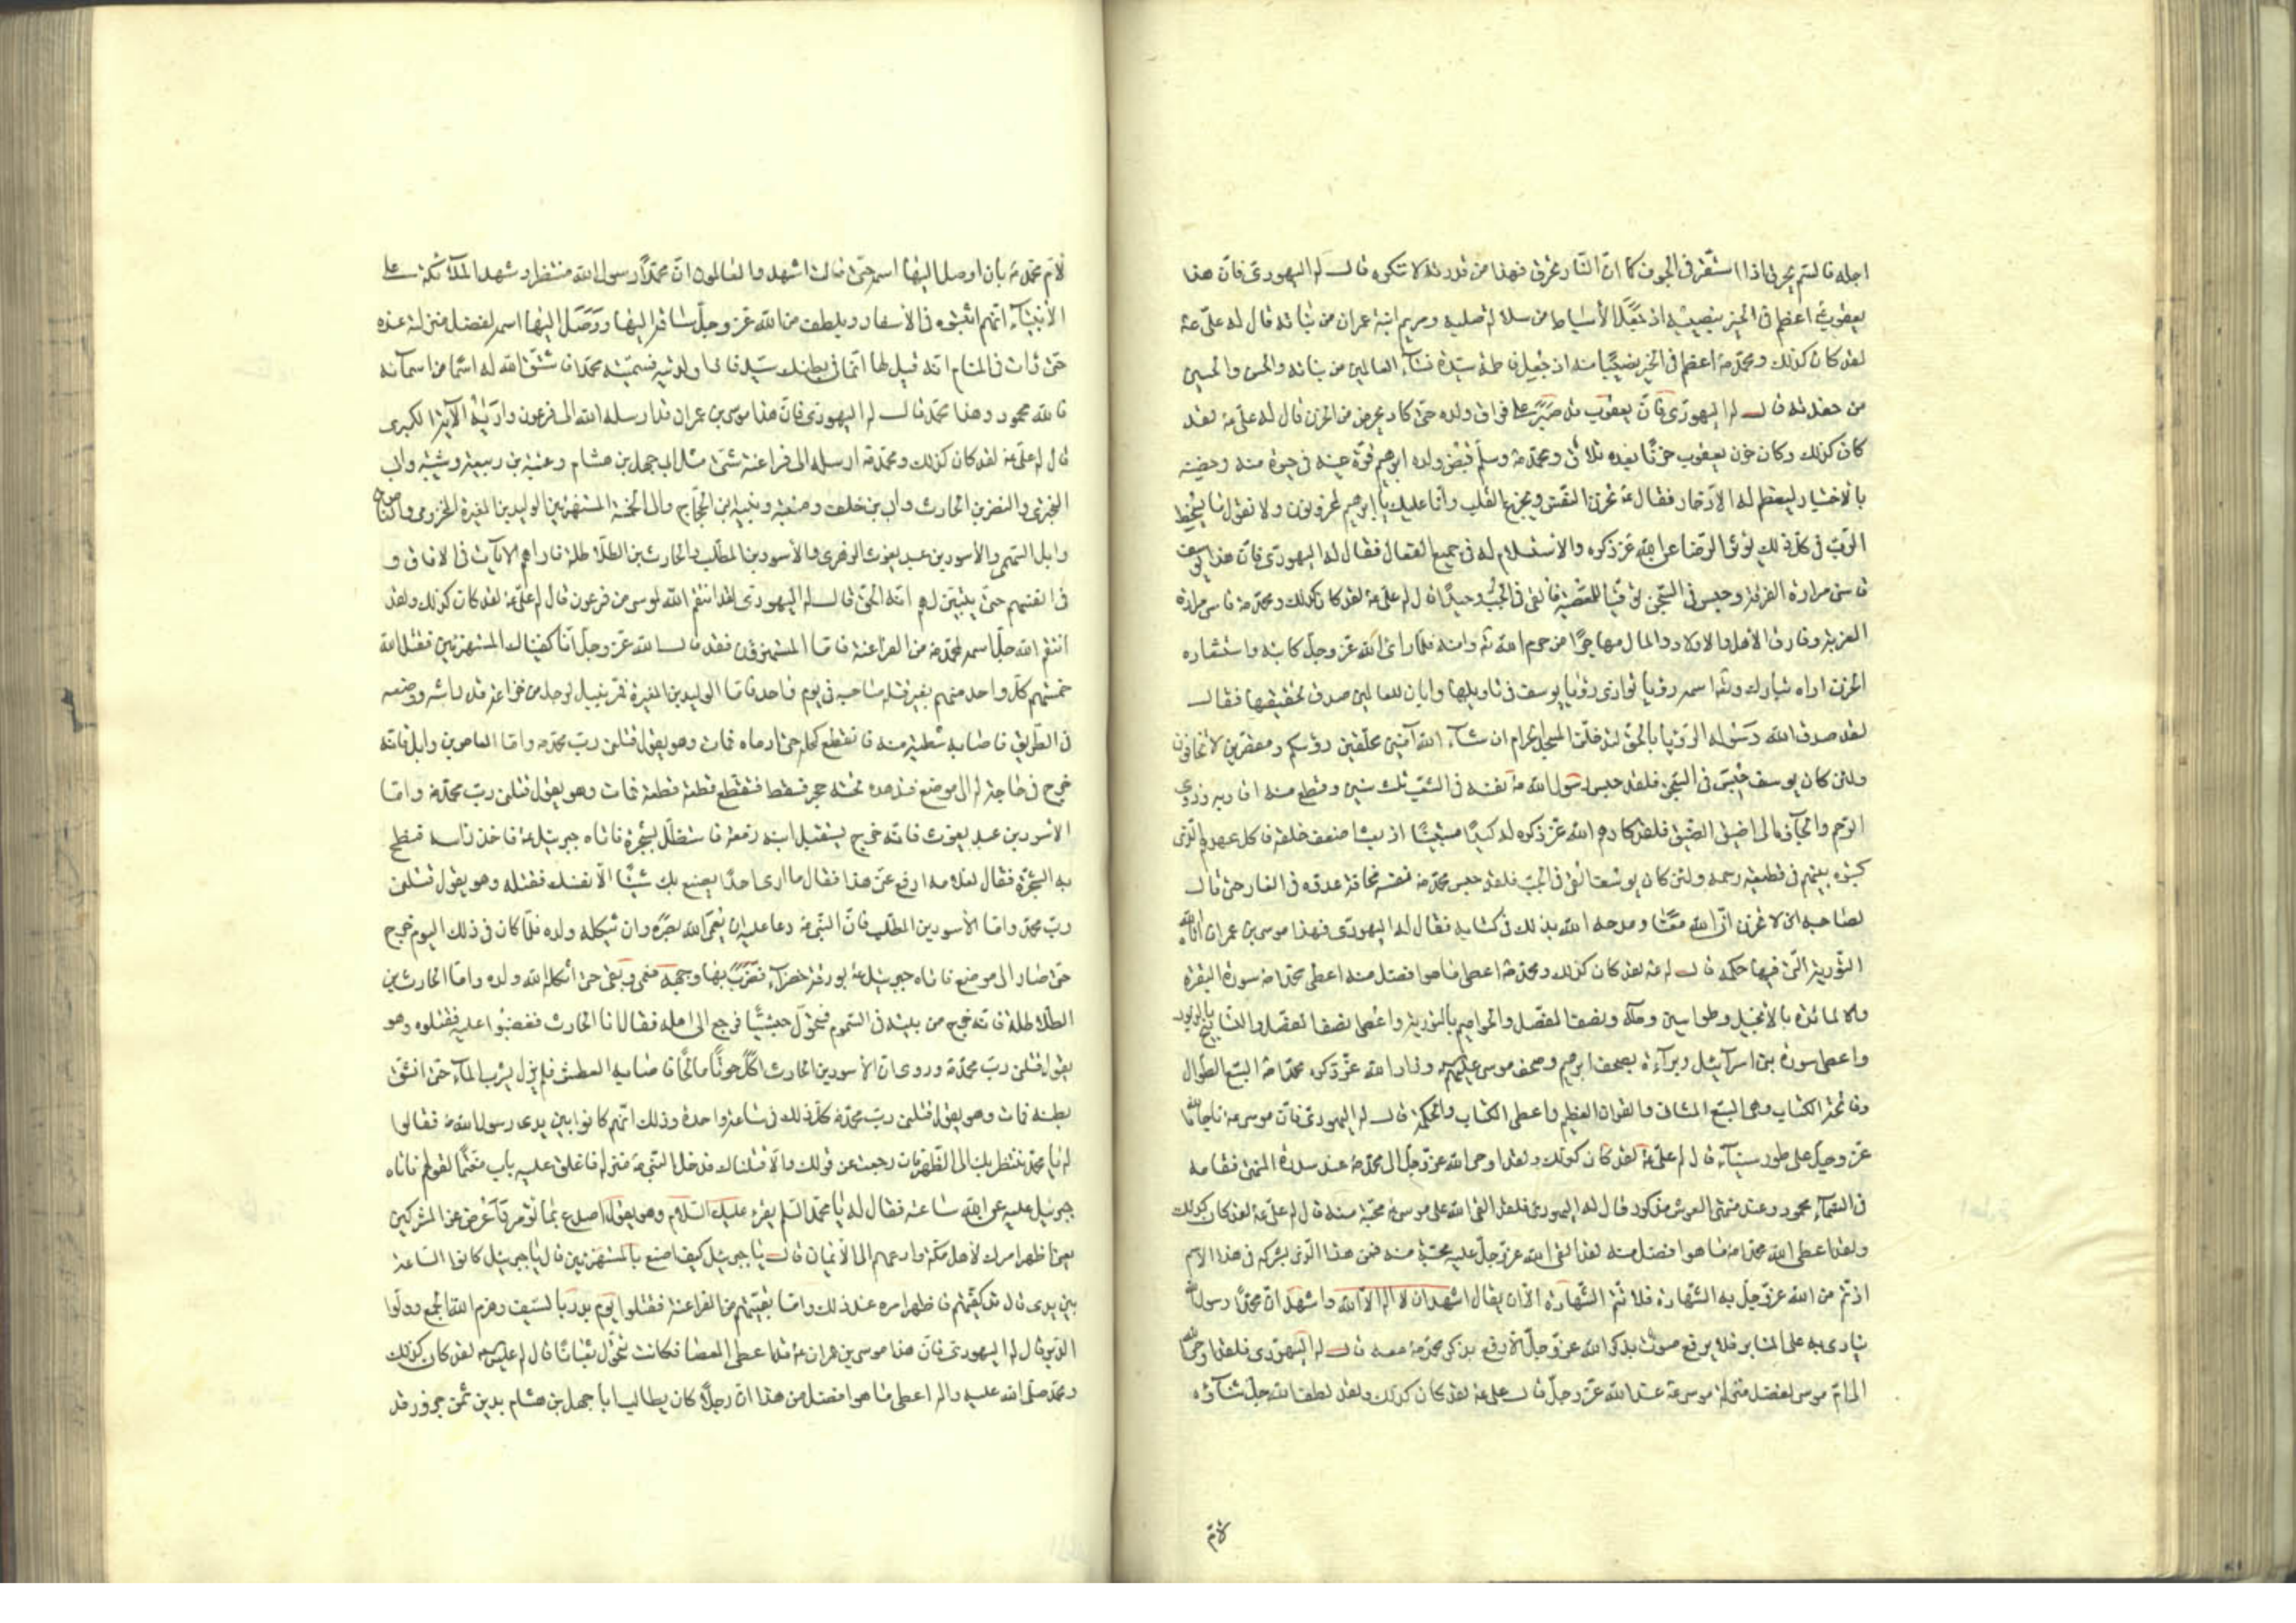 اجله فالسم يحرق اذا استقر فى الجوف كما انّ النّار تحرق فهذا من قدرته لا تنكره قال له اليهودى فانّ هذا
يعقوب ع اعظم فى الخير نصيبه اذ جعل الأسباط من سلالة صلبه ومريم ابنة عمران من بناته قال له علىّ ع
لقد كان كذلك ومحمّد ص اعظم فى الخير نصيبًا منه اذ جعل فاطمة سيّدة نسآء العالمين من بناته والحسن والحسين
من حفدته قال له اليهودى فانّ يعقوب قد صبر على فراق ولده حتى كاد يحرض من الحزن قال له علىّ ع لقد
كان كذلك وكان حزن يعقوب حزنًا بعده تلاق ومحمّد ص وسلّم قبض ولده ابرهيم قرّة عينه فى حيوة منه وخصّه
بالاختبار ليعظم له الادّخار فقال ع تحزن النّفس ويجزع القلب وانّا عليك يا ابرهيم لمحزونون ولا نقول ما يسخط
الرّبّ فى كلّ ذلك يؤثر الرّضا عن الله عزّ ذكره والاستسلام له فى جميع الفعال فقال له اليهودى فانّ هذا يوسف
قاسى مرارة الفرقة وحبس فى السّجن توقّيًا للمعصية فالقى فى الجبّ وحيدًا قال له علىّ ع لقد كان كذلك ومحمّد ص قاسى مرارة
الغربة وفارق الأهل والاولاد والمال مهاجرًا من حرم الله تع وامنه فلمّا راى الله عزّ وجلّ كابته واستشعاره
الحزن اراه تبارك وتع اسمه رؤيا توازى رؤيا يوسف فى تاويلها وابان للعالمين صدق تحقيقها فقال
لقد صدق الله رسوله الرّؤيا بالحقّ لتدخلنّ المسجد الحرام ان شآء الله آمنين محلّقين رؤسكم ومقصّرين لا تخافون
ولئن كان يوسف حبس فى السّجن فلقد حبس رسول الله ص نفسه فى الشّعب ثلث سنين وقطع منه اقاربه وذوى
الرّحم والجأوه الى اضيق المضيق فلقد كادهم الله عزّ ذكره له كيدًا مستبينًا اذ بعث اضعف خلقه فاكل عهدهم الّذى
كتبوه بينهم فى قطيعة رحمه ولئن كان يوسف القى فى الجبّ فلقد حبس محمّد ص نفسه مخافة عدوّه فى الغار حتى قال
لصاحبه لا تحزن انّ الله معنا ومدحه الله بذلك فى كتابه فقال له اليهودى فهذا موسى بن عمران اتاه الله
التّورية الّتى فيها حكمه قال له ع لقد كان كذلك ومحمّد ص اعطى ما هو افضل منه اعطى محمّد ص سورة البقرة
والمائدة بالانجيل وطواسين وطه ونصف المفصّل والحواميم بالتّورية واعطى نصف المفصّل والتّسابيح بالزّبور
واعطى سورة بنى اسرآئيل وبرآءة بصحف ابرهيم وصحف موسى عليهم وزاد الله عزّ ذكره محمّدا ص السّبع الطّوال
وفاتحة الكتاب وهى السّبع المثانى والقران العظيم واعطى الكتاب والحكمة قال له اليهودى فانّ موسى ع ناجاه الله
عزّ وجلّ على طور سينآء قال له علىّ ع لقد كان كذلك ولقد اوحى الله عزّ وجلّ الى محمّد ص عند سدرة المنتهى فمقامه
فى السّمآء محمود وعند منتهى العرش مذكور قال له اليهودى فلقد القى الله على موسى ع محبّة منه قال له علىّ ع لقد كان كذلك
ولقد اعطى الله محمّدا ص ما هو افضل منه لقد القى الله عزّ وجلّ عليه محبّة منه فمن هذا الّذى يشركه فى هذا الاسم
اذ تمّ من الله عزّ وجلّ به الشّهادة فلا تتمّ الشّهادة الّا ان يقال اشهد ان لا اله الّا الله واشهد انّ محمّدًا رسول الله
ينادى به على المنابر فلا يرفع صوت بذكر الله عزّ وجلّ الّا رفع بذكر محمّد ص معه قال له اليهودى فلقد اوحى الله
الى امّ موسى لفضل منزلة موسى ع عند الله عزّ وجلّ قال علىّ ع لقد كان كذلك ولقد لطف الله جلّ ثناؤه
لامّ
لامّ محمّد ص بان اوصل اليها اسمه حتى قالت اشهد والعالمون انّ محمّدًا رسول الله منتظر وشهد الملآئكة على
الأنبيآء انّهم اثبتوه فى الأسفار وبلطف من الله عزّ وجلّ ساقه اليها ووصل اليها اسمه لفضل منزلته عنده
حتى رات فى المنام انّه قيل لها انّ ما فى بطنك سيّد فاذا ولدتيه فسمّيه محمّدا فاشتقّ الله له اسمًا من اسمآئه
فالله محمود وهذا محمّد قال له اليهودى فانّ هذا موسى بن عمران قد ارسله الله الى فرعون واراه الآية الكبرى
قال له علىّ ع لقد كان كذلك ومحمّد ص ارسله الى فراعنة شتّى مثل ابى جهل بن هشام وعتبة بن ربيعة وشيبة وابى
البخترى والنضر بن الحارث وابى بن خلف ومنبّه ونبيه ابن الحجّاج والى الخمسة المستهزئين الوليد بن المغيرة المخزومى والعاص بن
وايل السّهمى والأسود بن عبد يغوث الزهرى والأسود بن المطّلب والحارث بن الطلاطلة فاراهم الايات فى الافاق و
فى انفسهم حتى يتبيّن لهم انّه الحقّ قال له اليهودى لقد انتقم الله لموسى من فرعون قال له علىّ ع لقد كان كذلك ولقد
انتقم الله جلّ اسمه لمحمّد ص من الفراعنة فامّا المستهزؤن فقد قال الله عزّ وجلّ انّا كفيناك المستهزئين فقتل الله
خمستهم كلّ واحد منهم بغير قتلة صاحبه فى يوم واحد فامّا الوليد بن المغيرة فمرّ بنبل لرجل من خزاعة قد راشه ووضعه
فى الطّريق فاصابه شظية منه فانقطع اكحله حتى ادماه فمات وهو يقول قتلنى ربّ محمّد ص وامّا العاص بن وايل فانّه
خرج فى حاجة له الى موضع فتدهده تحته حجر فسقط فتقطّع قطعة قطعة فمات وهو يقول قتلنى ربّ محمّد ص وامّا
الأسود بن عبد يغوث فانّه خرج يستقبل ابنه زمعة فاستظلّ بشجرة فاتاه جبرئيل ع فاخذ راسه فنطح
به الشّجرة فقال لغلامه ارفع عنّى هذا فقال ما ارى احدًا يصنع بك شيئًا الّا نفسك فقتله وهو يقول قتلنى
ربّ محمّد وامّا الأسود بن المطّلب فانّ النّبى ص دعا عليه ان يعمى الله بصره وان يثكله ولده فلمّا كان فى ذلك اليوم خرج
حتى صار الى موضع فاتاه جبرئيل ع بورقة خضرآء فضرب بها وجهه فعمى وبقى حتى اثكله الله ولده وامّا الحارث بن
الطلاطلة فانّه خرج من بيته فى السّموم فتحوّل حبشيًّا فرجع الى اهله فقال انا الحارث فغضبوا عليه فقتلوه وهو
يقول قتلنى ربّ محمّد ص وروى انّ الاسود بن الحارث اكل حوتًا مالحًا فاصابه العطش فلم يزل يشرب المآء حتى انشقّ
بطنه فمات وهو يقول قتلنى ربّ محمّد ص كلّ ذلك فى ساعة واحدة وذلك انّهم كانوا بين يدى رسول الله ص فقالوا
له يا محمّد ننتظر بك الى الظّهر فان رجعت عن قولك والّا قتلناك فدخل النّبى ص منزله فاغلق عليه بابه مغتمًّا لقولهم فاتاه
جبرئيل عليه عن الله ساعته فقال له يا محمّد السّلم يقرء عليك السّلام وهو يقول اصدع بما تؤمر واعرض عن المشركين
يعنى اظهر امرك لأهل مكّة وادعهم الى الايمان قال يا جبرئيل كيف اصنع بالمستهزئين قال يا جبرئيل كانوا السّاعة
بين يدى قال قد كفيتهم فاظهر امره عند ذلك وامّا بقيّتهم من الفراعنة فقتلوا يوم بدر بالسّيف وهزم الله الجمع وولّوا
الدّبر قال له اليهودى فانّ هذا موسى بن عمران ع قد اعطى العصا فكانت تحوّل ثعبانًا قال له علىّ ع لقد كان كذلك
ومحمّد صلى الله عليه واله اعطى ما هو افضل من هذا انّ رجلًا كان يطالب ابا جهل بن هشام بدين ثمن جزور قد